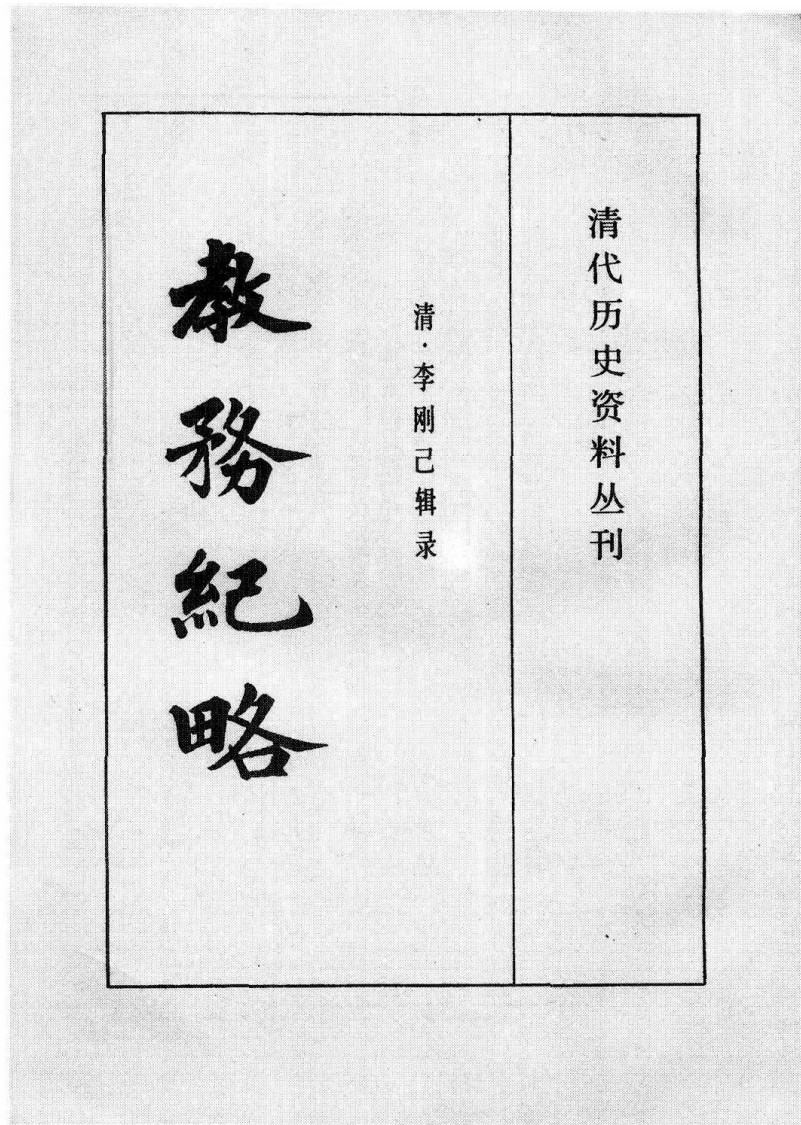 清代历史资料丛刊
清·李刚己辑录
教務紀略